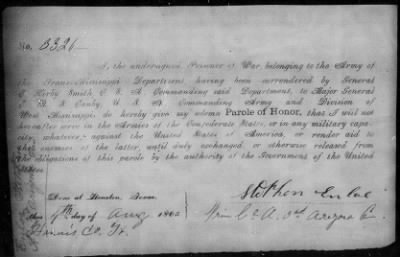 No. 3326
I, the undersigned, Prisoner of War, belonging to the Army of
the Trans-Mississippi Department, having been surrendered by General
E. Kirby Smith, C. S. A., Commanding said Department, to Major General
E. R. S. Canby, U. S. A., Commanding Army and Division of
West Mississippi, do hereby give my solemn Parole of Honor, that I will not
hereafter serve in the Armies of the Confederate States, or in any military capa-
city, whatever, against the United States of America, or render aid to
the enemies of the latter, until duly exchanged, or otherwise released from
the obligations of this parole by the authority of the Government of the United
States.
Done at Houston, Texas,
this 9th day of Aug 1865
Stephen
Harris Co. Tx.
Priv Co A. 3rd Arizona